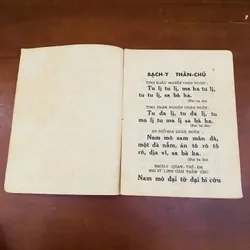 BẠCH-Y THẦN-CHÚ
TỊNH KHẨU NGHIỆP CHƠN NGÔN :
Tu lị tu lị, ma ha tu lị,
tu tu lị, sa bà ha.
(Đọc ba lần)
TỊNH THÂN NGHIỆP CHƠN NGÔN :
Tu đa lị, tu đa lị, tu
ma lị tu ma lị sa bà ha.
(Đọc ba lần)
AN THỔ-ĐỊA CHƠN NGÔN :
Nam mô sam mãn đà,
một đà nẫm, án tô rô tô
rô, địa vĩ, sa bà ha.
(Đọc ba lần)
BẠCH-Y QUAN-THẾ-ÂM
ĐẠI SĨ LINH CẢM THẦN CHÚ
Nam mô đại từ đại bi cứu